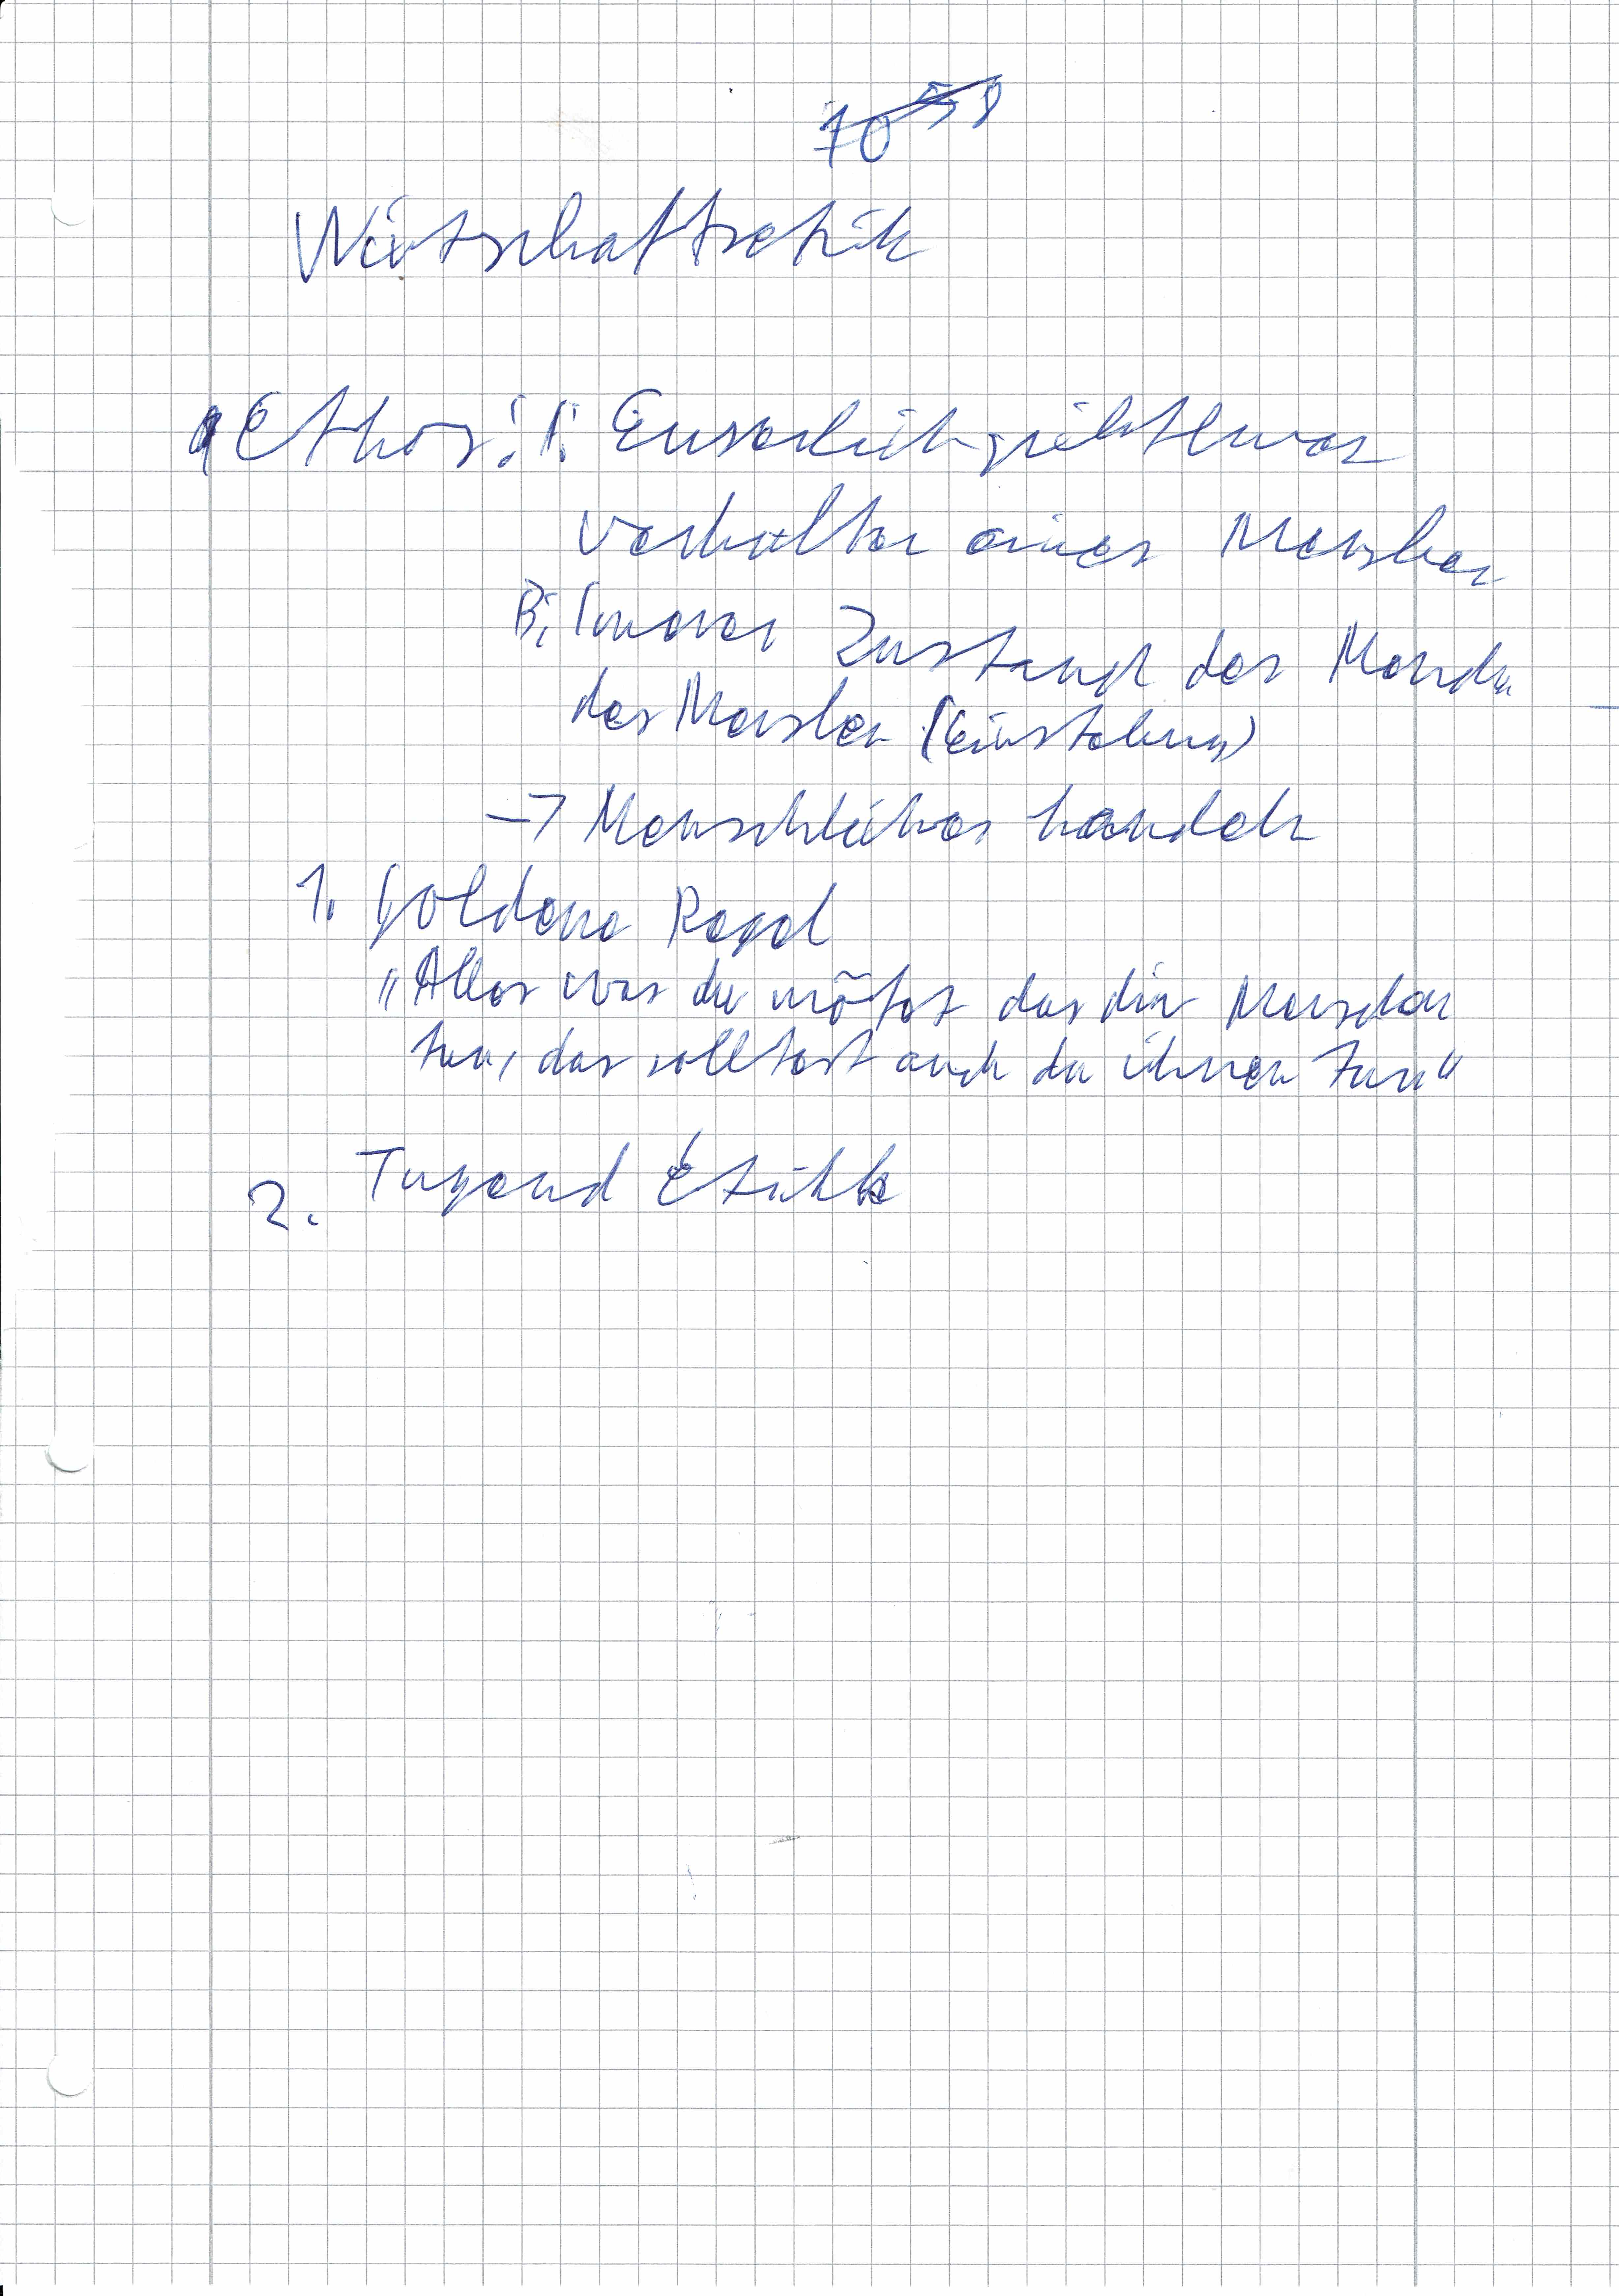 10
Wirtschaftsetik
Ethos: A:
verhalten eines Menschen
B; Innerer Zustand des
des Menschen (Einstelung)
-> Menschliches handeln
1. Goldene Regel
"Alles was du möchst das dir Menschen
tun, das solltest auch du ihnen tun"
2. Tugend Etihk